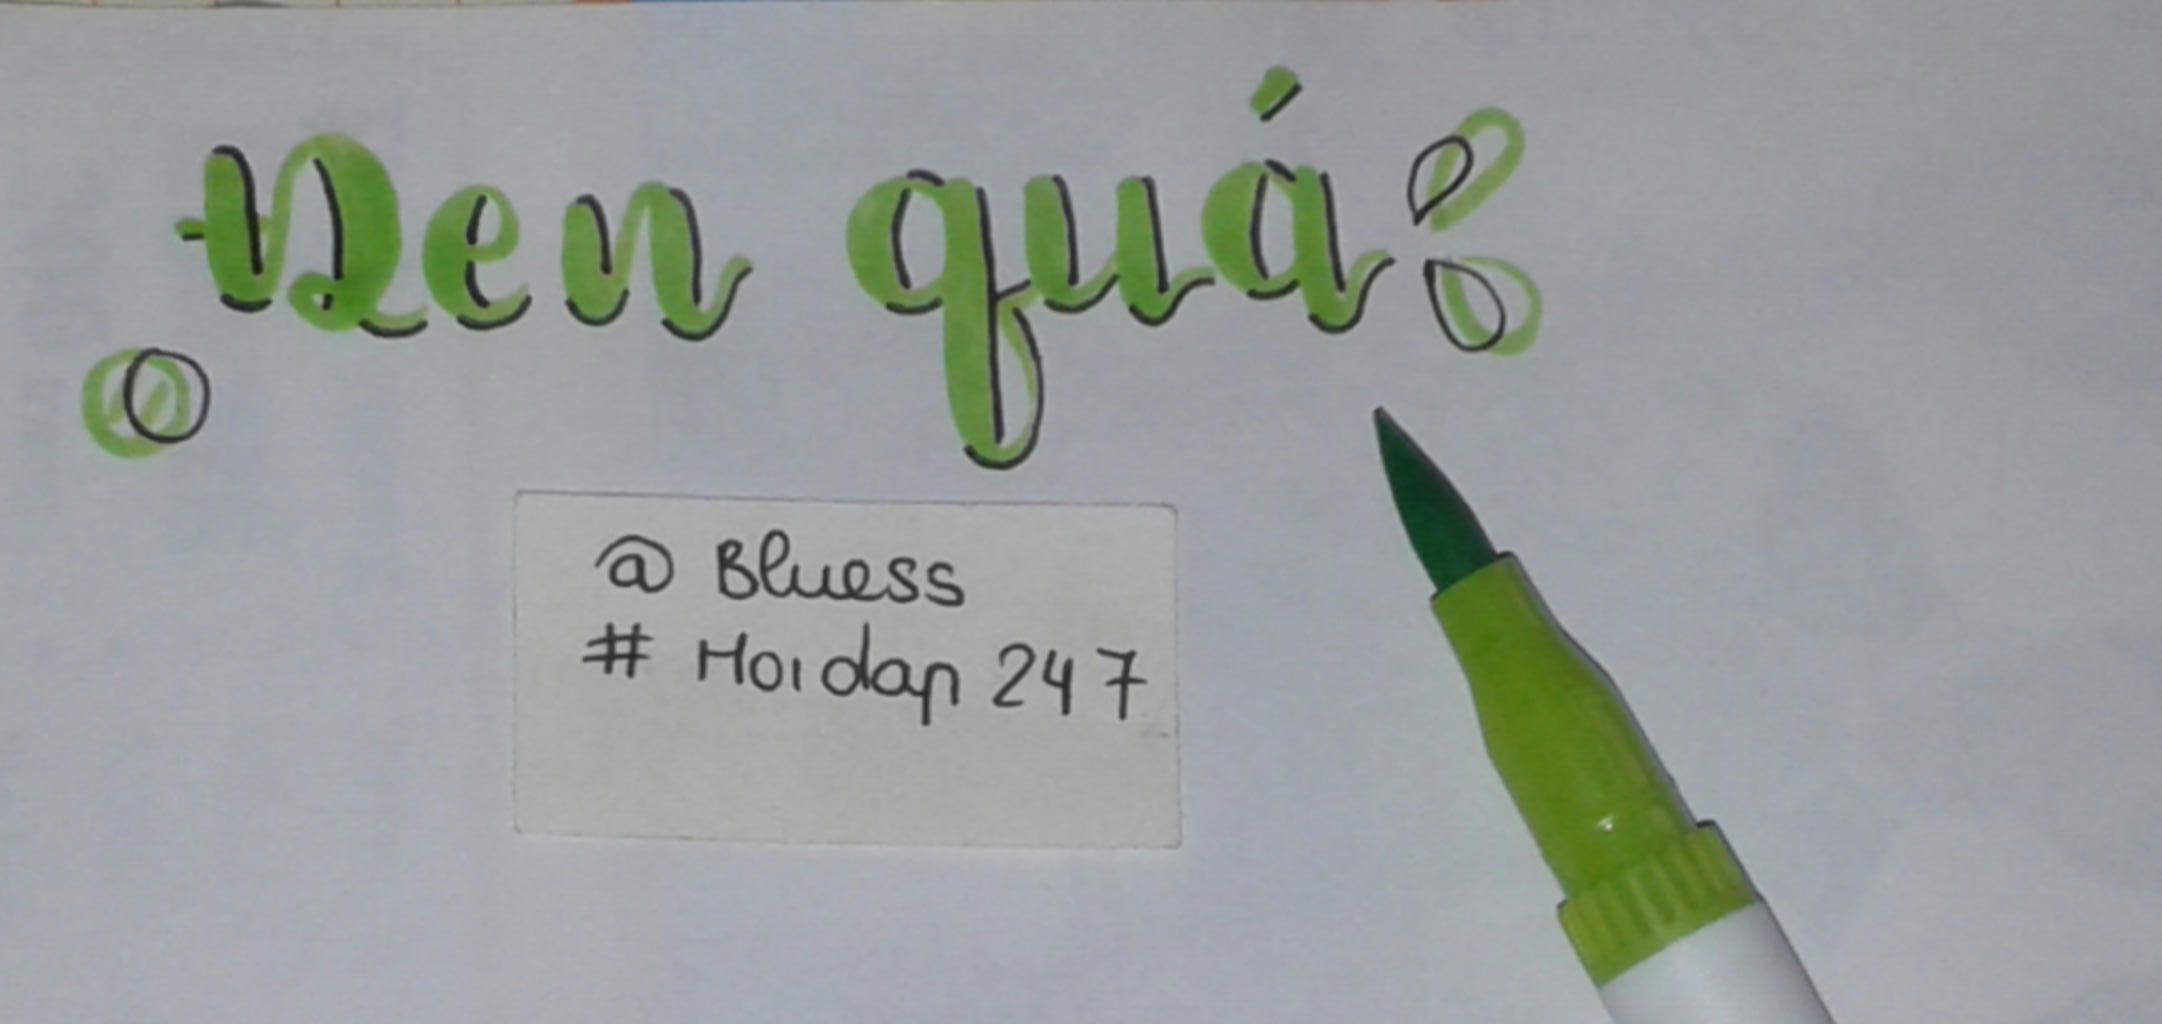 Đen quá
@ Bluess
# Hoidap 247